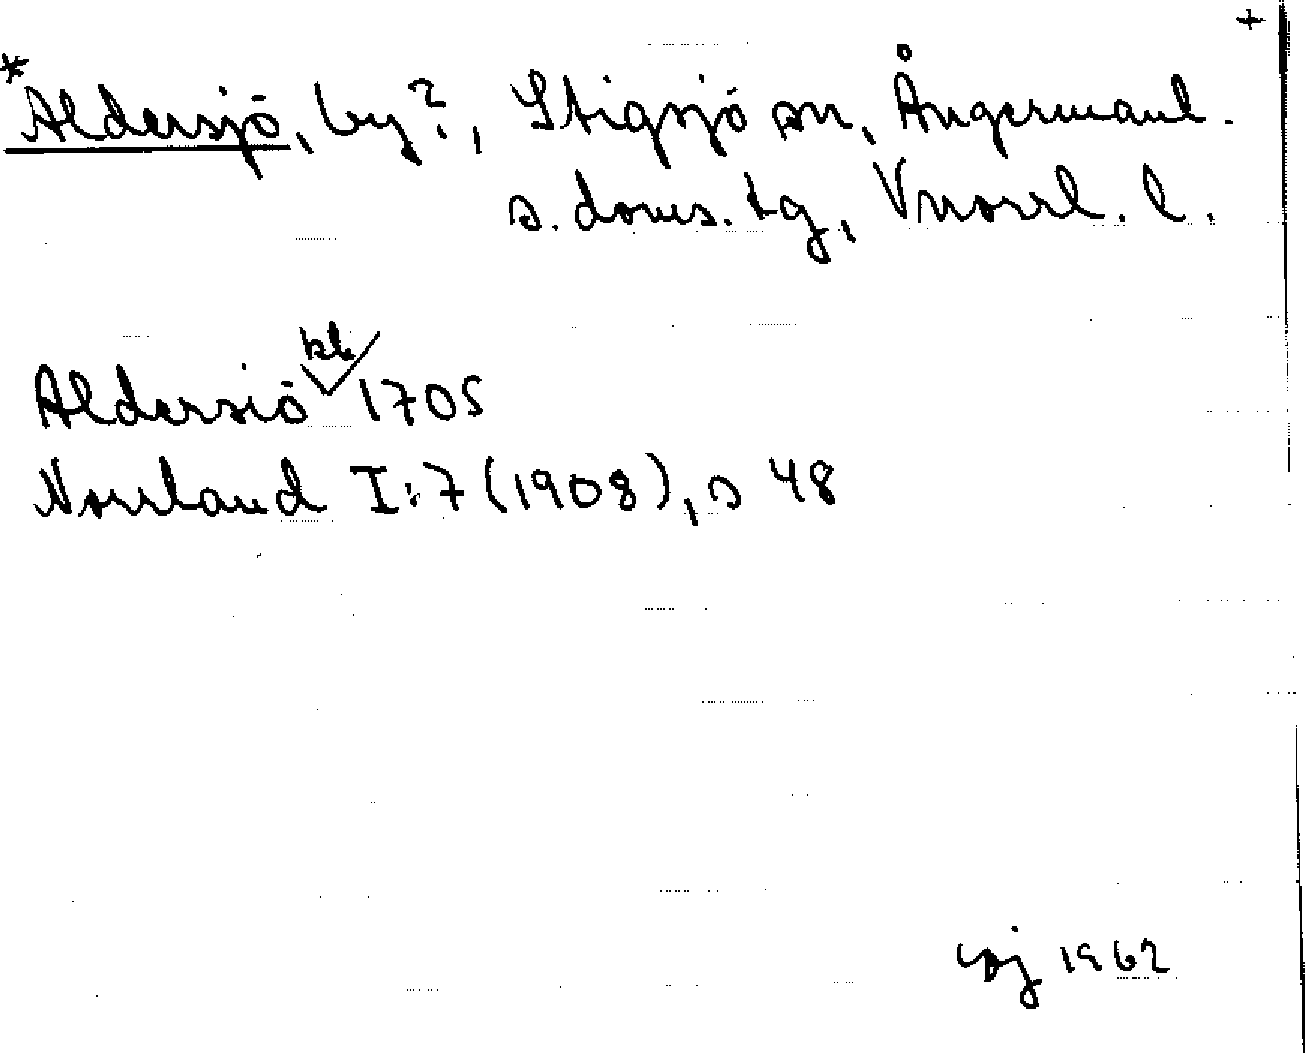 +
*Aldersjö, by?, Stigsjö sn, Ångermanl.
s. doms. tg, Vnorrl. l.
Aldersiö kb 1705
Norrland I:7 (1908), s 48
1962